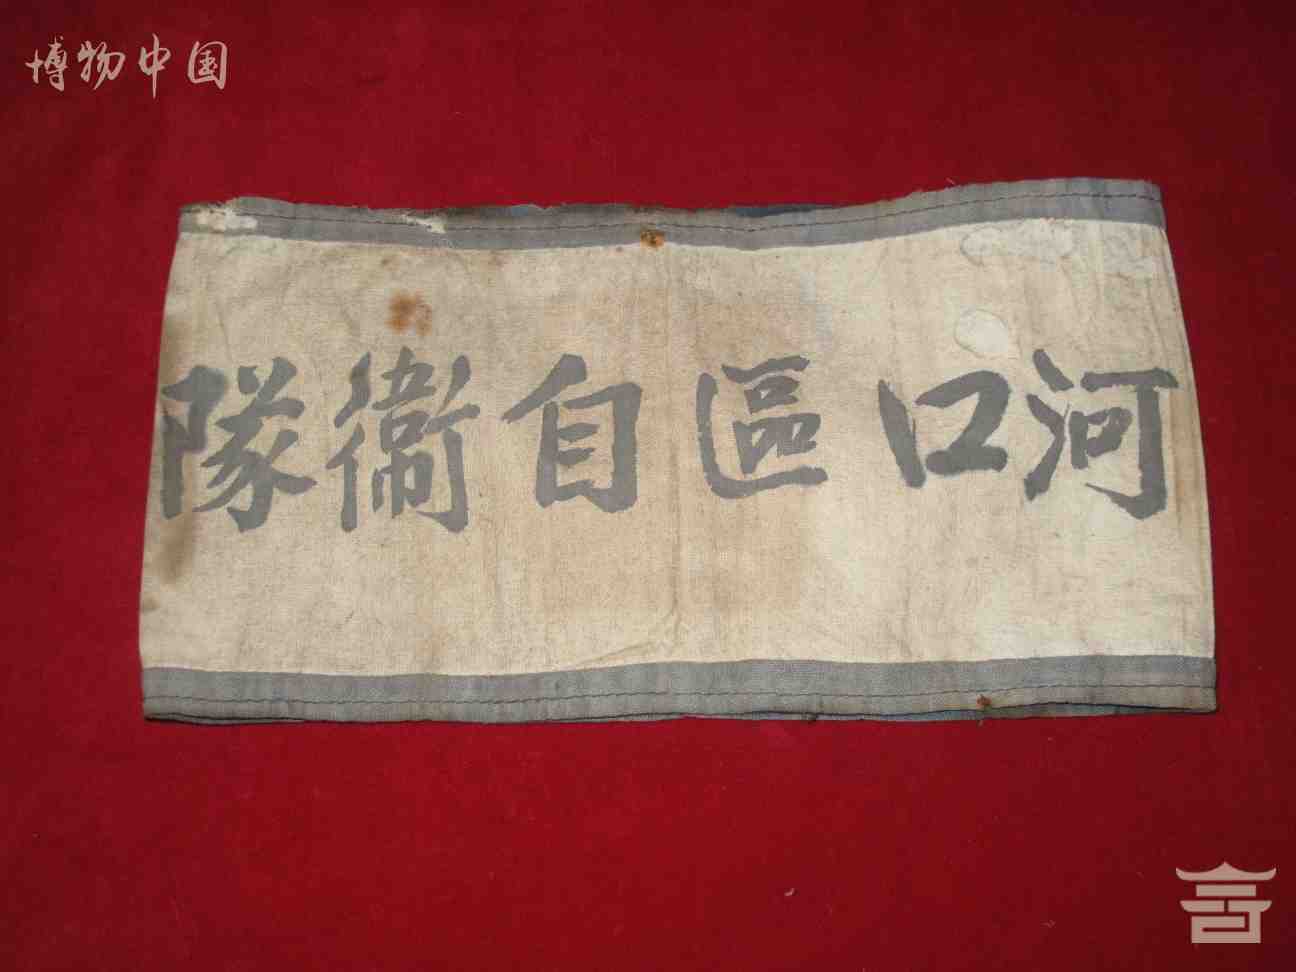 博物中国
河口區自衞隊